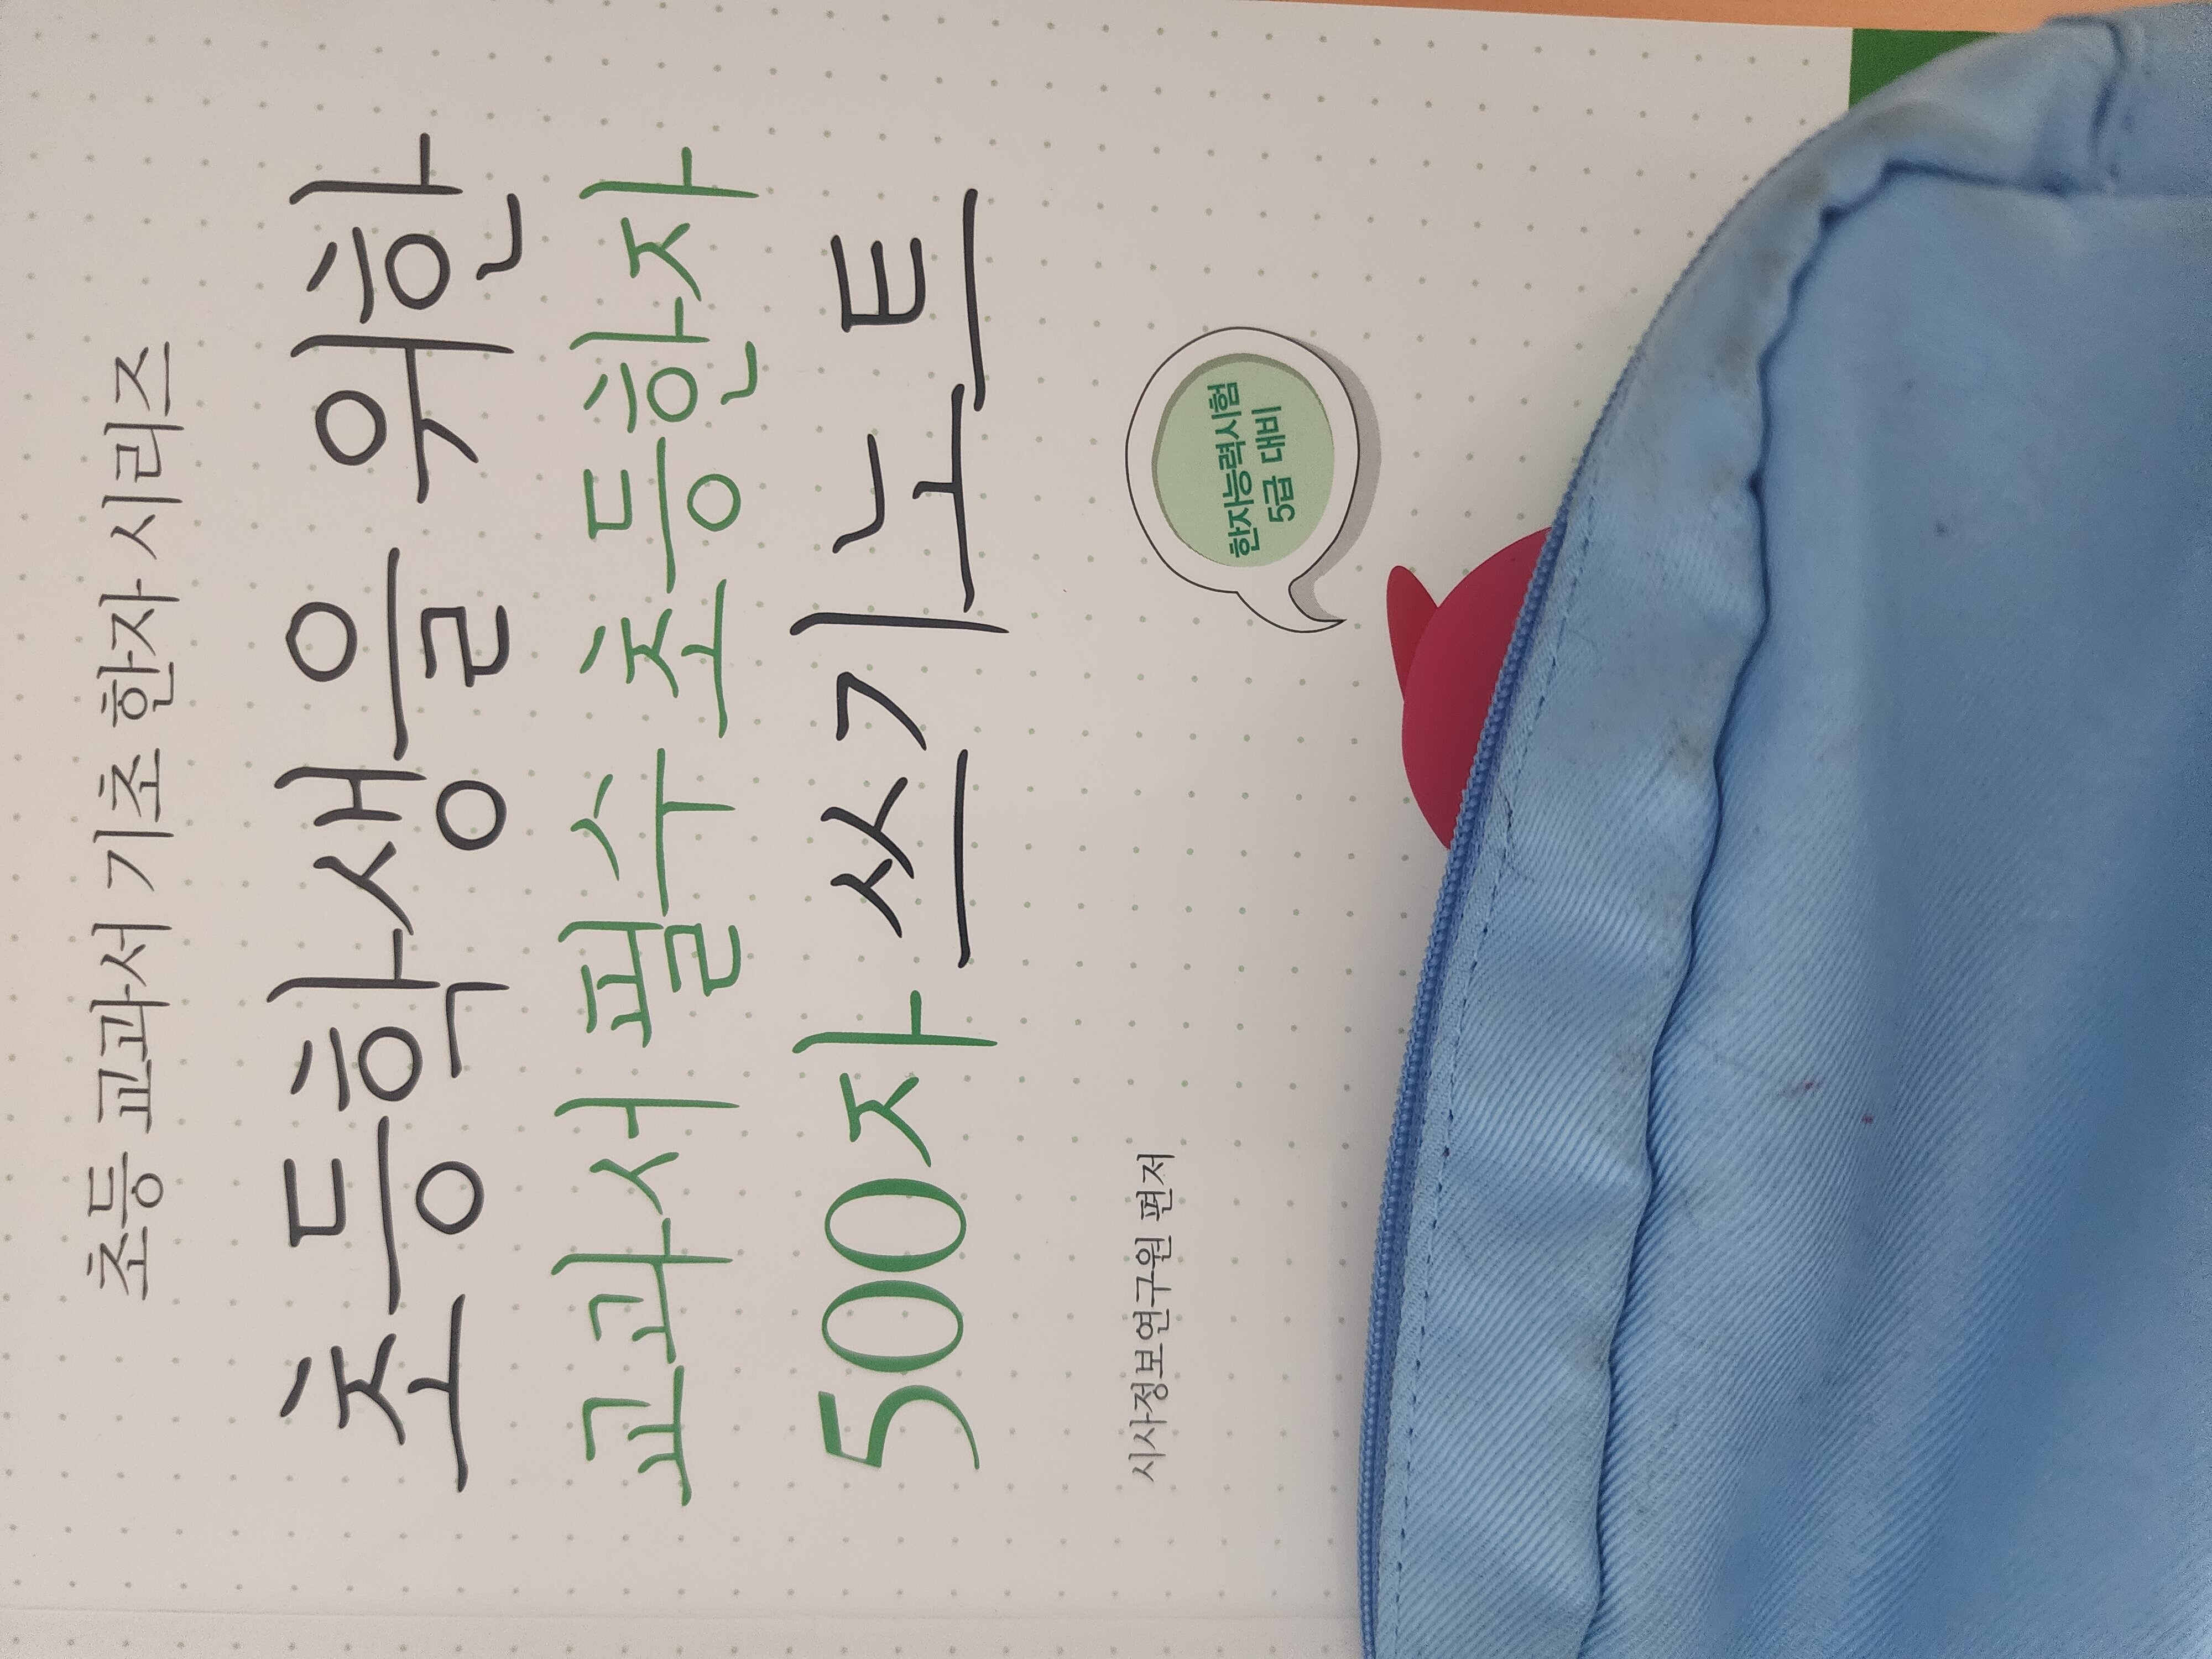 초등 교과서 기초 한자 시리즈
초등학생을 위한
교과서 필수 초등한자
500자 쓰기 노트
한자능력시험
5급 대비
시사정보연구원 편저